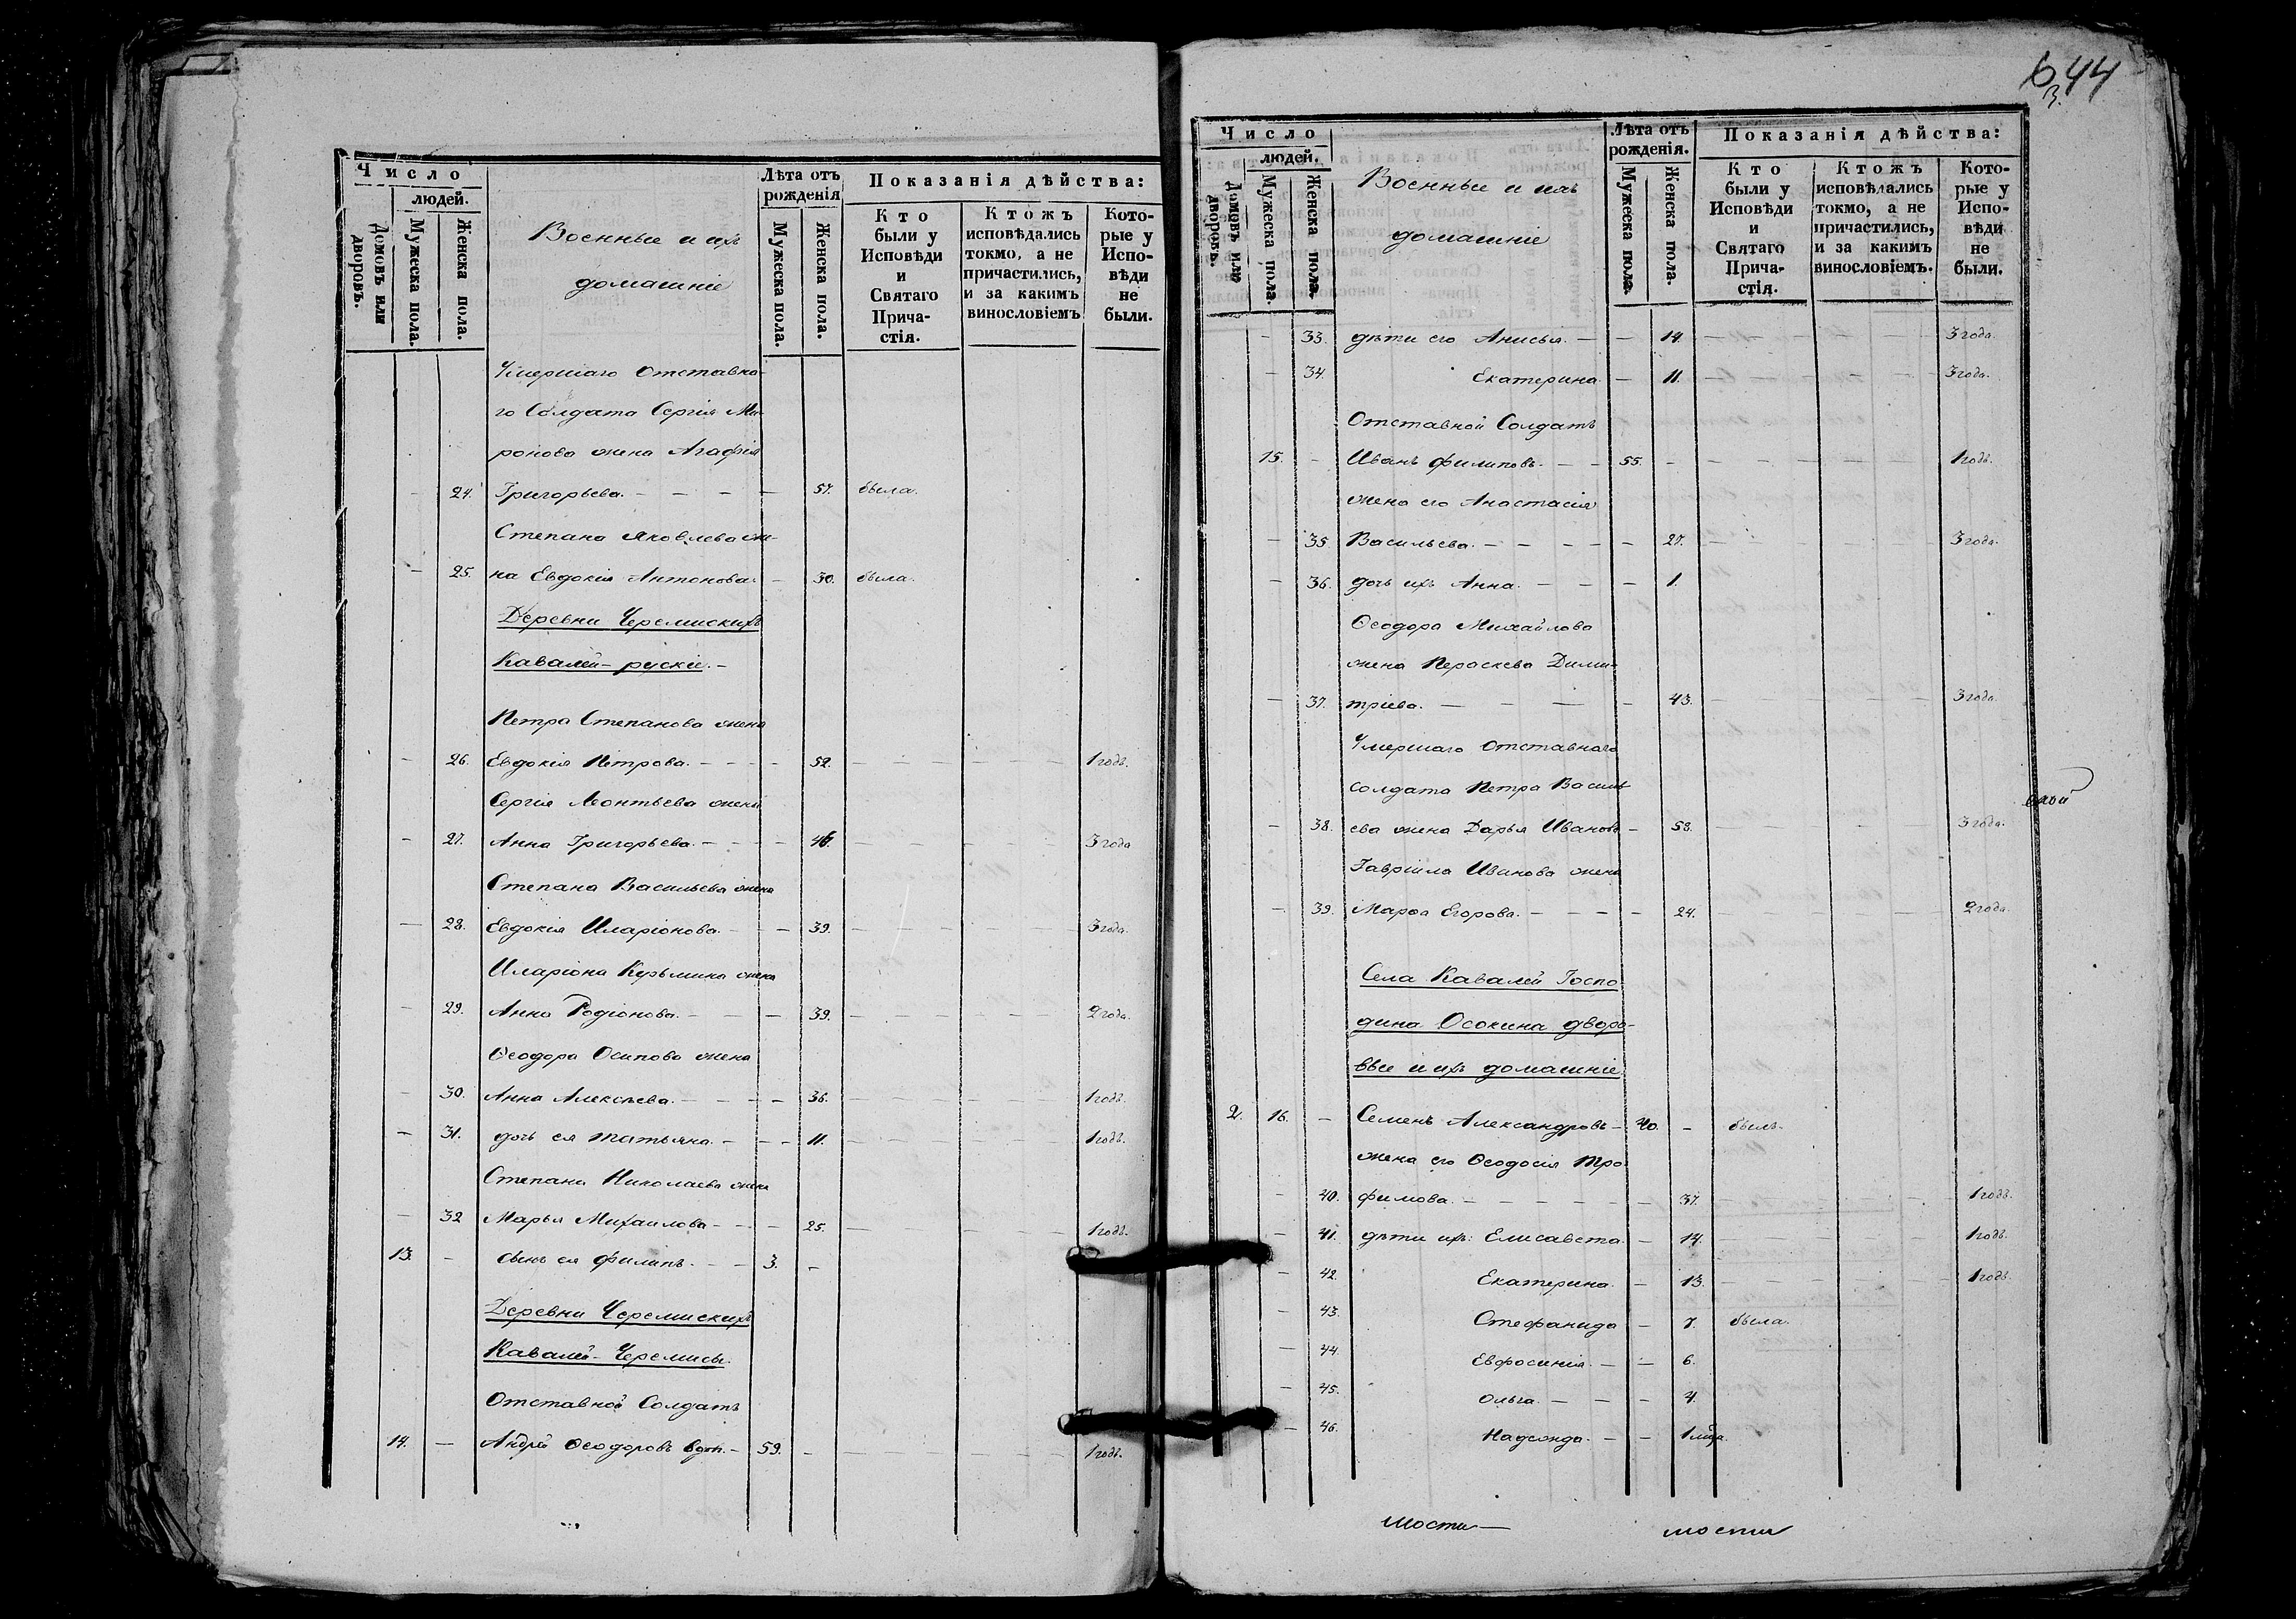 Число
людей.
Домовъ или дворовъ.
Мужеска пола.
Женска пола.
Военные и ихъ
домашніе
Лѣта отъ
рожденія
Мужеска пола.
Женска пола.
Показанія дѣйства:
Кто
были у
Исповѣди
и
Святаго
Прича-
стія.
Ктожъ
исповѣдались
токмо, а не
причастились,
и за какимъ
винословіемъ
Кото-
рые у
Испо-
вѣди
не
были.
Умершаго Отставна-
го Солдата Сергія Ми-
ронова жена Агафія
— 24. Григорьева. — — — — 57. была.
Степана Яковлева же-
— 25. на Евдокія Антонова. — 30. была.
Деревни Черемискихъ
Кавалей - рускіе. —
Петра Степанова жена
— 26. Евдокія Петрова. — — — 52. — — — — 1 годъ.
Сергія Леонтьева жена
— 27. Анна Григорьева. — — — — — — — 3 года
Степана Васильева жена
— 28. Евдокія Иларіонова. — — 39. — — — — 3 года.
Иларіона Кузьмина жена
— 29. Анна Родіонова. — — — 39. — — — — 2 года.
Ѳеодора Осипова жена
— 30. Анна Алексѣева. — — — 36. — — — — 1 годъ.
— 31. дочь ея татьяна. — — — 11. — — — — 1 годъ.
Степана Николаева жена
— 32 Марья Михаилова — — — 25. — — — 1 годъ.
13. — сынъ ея Филипъ. — — 3. —
Деревни Черемискихъ
Кавалей - Черемисы.
Отставной Солдатъ
14. — Андрей Ѳеодоровъ — 59. — — — — 1 годъ.
44
Число
людей.
Домовъ или дворовъ.
Мужеска пола.
Женска пола.
Военные и ихъ
домашніе
Лѣта отъ
рожденія.
Мужеска пола.
Женска пола.
Показанія дѣйства:
Кто
были у
Исповѣди
и
Святаго
Прича-
стія.
Ктожъ
исповѣдались
токмо, а не
причастились,
и за какимъ
винословіемъ.
Кото-
рые у
Испо-
вѣди
не
были.
— 33. дѣти его Анисья. — — 14. — — — — 3 года.
— 34. Екатерина. — 11. — — — — 3 года.
Отставной Солдатъ
15. — Иванъ Филиповъ. — — 55. — — — — 1 годъ.
жена его Анастасія
— 35. Васильева. — — — — — 27. — — — — 3 года.
— 36. дочь ихъ Анна. — — — 1.
Ѳеодора Михайлова
жена Пераскева Дими-
— 37. тріева. — — — — 43. — — — — 3 года.
Умершаго Отставнаго
солдата Петра Василь-
— 38. ева жена Дарья Иванов — 58. — — — 3 года.
Гавріила Иванова жена
— 39. Марѳа Егорова. — — — — 24. — — — — 2 года.
Села Кавалей Госпо-
дина Осокина дворо-
вые и ихъ домашніе.
2. 16. — Семенъ Александровъ — 40. — былъ.
жена его Ѳеодосія Тро-
— 40. фимова. — — — — — — 37. — — — — 1 годъ.
— 41. дѣти ихъ: Елисавета. — 14. — — — — 1 годъ.
— 42. Екатерина. — 13. — — — — 1 годъ.
— 43. Стефанида — 7. была.
— 44. Евфросинія. — — 6.
— 45. Ольга. — — — 4.
— 46. Надежда. — — 1